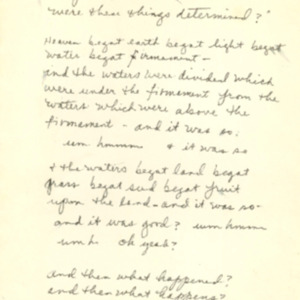 were these things determined?"
Heaven begat earth begat light begat
water begat firmament –
and the waters were divided which
were under the firmament from the
waters which were above the
firmament – and it was so.
umm hmmm & it was so
& the waters begat land begat
grass begat seed begat fruit
upon the land – and it was so –
and it was good? umm hmmm
um h oh yeah?
and then what happened?
and then what happens?